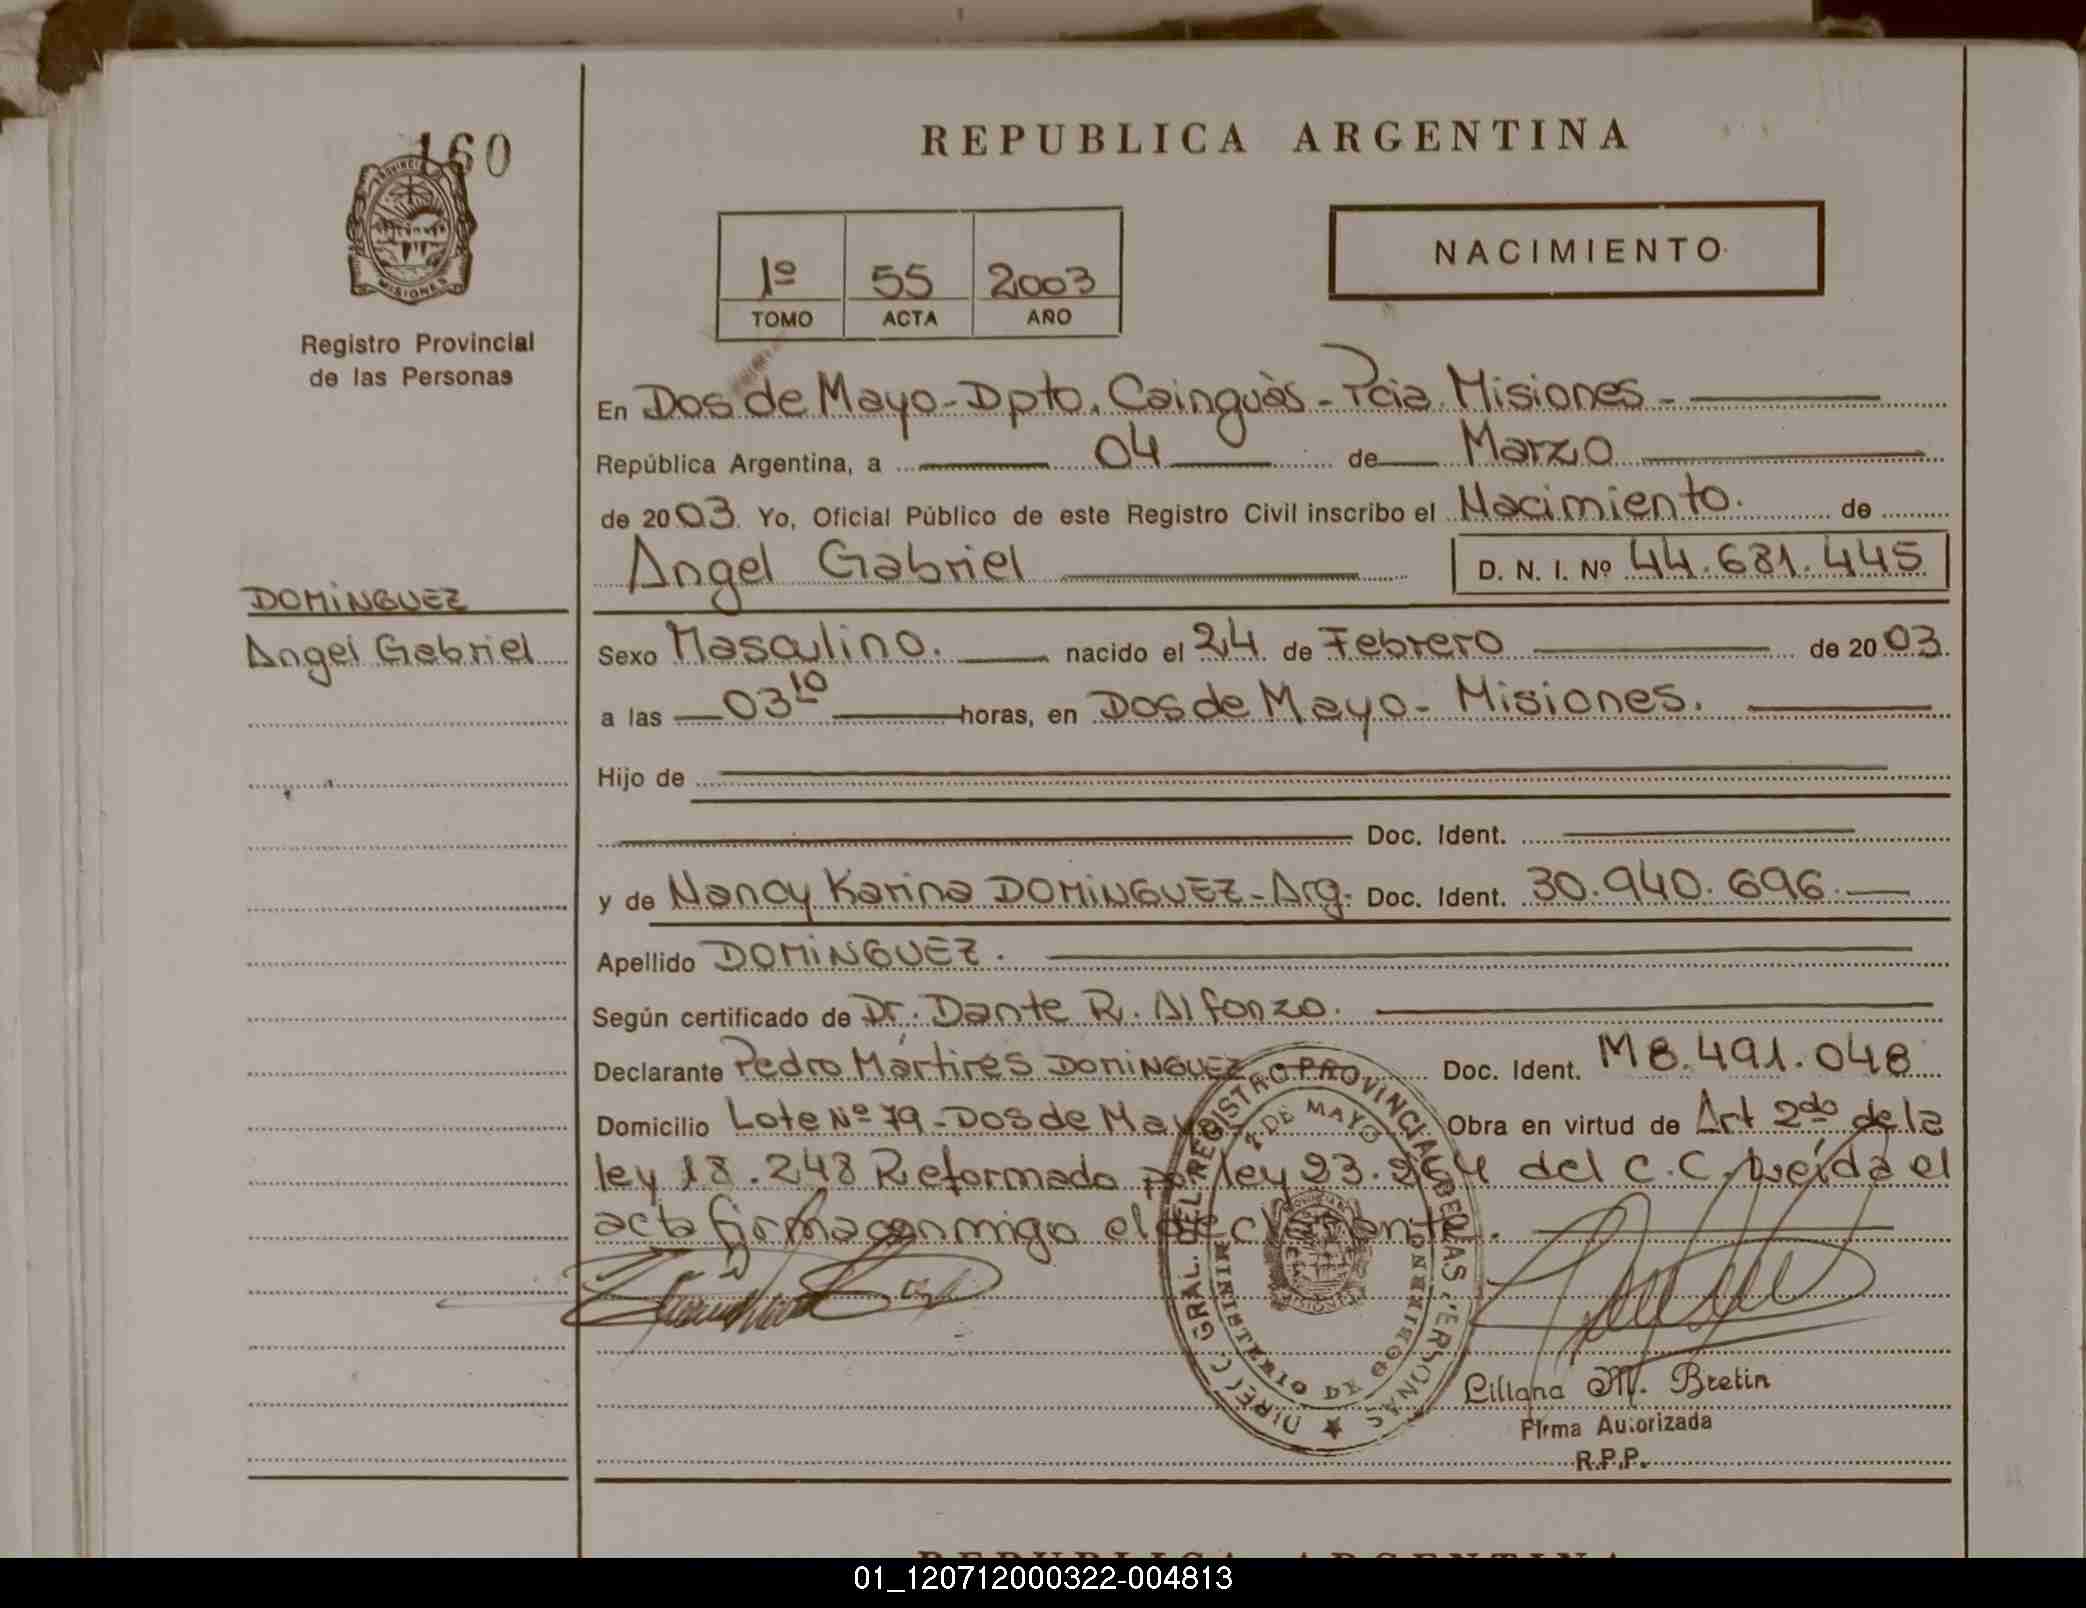 160
REPUBLICA ARGENTINA
PROVINCIA DE
MISIONES
Registro Provincial
de las Personas
1º 55 2003
TOMO ACTA AÑO
NACIMIENTO
En Dos de Mayo - Dpto. Cainguàs - Pcia. Misiones -
República Argentina, a 04 de Marzo
de 2003. Yo, Oficial Público de este Registro Civil inscribo el Nacimiento. de
Angel Gabriel D. N. I. Nº 44.681.445
DOMINGUEZ
Angel Gabriel
Sexo Masculino. nacido el 24 de Febrero de 2003.
a las 03 10 horas, en Dos de Mayo - Misiones.
Hijo de
Doc. Ident.
y de Nancy Karina DOMINGUEZ - Arg. Doc. Ident. 30.940.696.
Apellido DOMINGUEZ.
Según certificado de Dr. Dante R. Alfonzo.
Declarante Pedro Mártires DOMINGUEZ Doc. Ident. M8.491.048
Domicilio Lote Nº 79 - Dos de Mayo Obra en virtud de Art 2do de la
ley 18.248 Reformado por ley 23.264 del C.C. Leída el
acta firma conmigo el declarante.
DIRECC. GRAL. DEL REGISTRO PROVINCIAL DE LAS PERSONAS
2 DE MAYO
MINISTERIO DE GOBIERNO
Liliana M. Bretin
Firma Autorizada
R.P.P.
REPUBLICA ARGENTINA
01_120712000322-004813